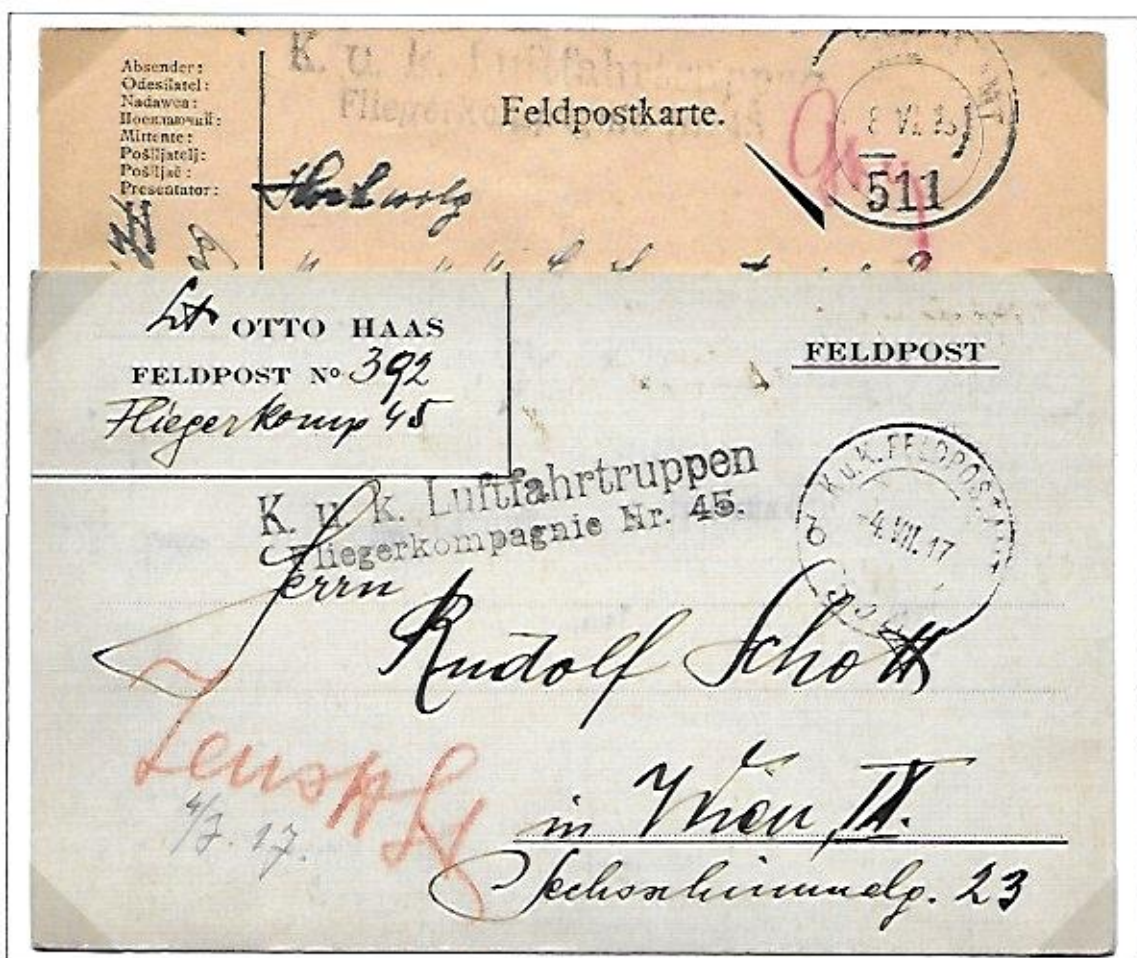 Absender:
Odesílatel:
Nadawca:
Посилаючий:
Mittente:
Pošiljatelj:
Pošiljač:
Presentator:
K. u. k. Luftfahrtruppen
Fliegerkomp
Feldpostkarte.
511
Lt OTTO HAAS
FELDPOST No 392
Fliegerkomp 45
FELDPOST
K. u. k. Luftfahrtruppen
Fliegerkompagnie Nr. 45.
K.u.K. FELDPOSTAMT
-4.VII.17
b
Herrn
Rudolf Schott
in Wien, IX.
Sechsschimmelg. 23
4/7. 17.